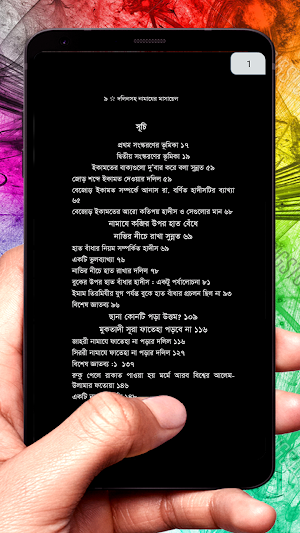 1
৯ ☆ দলিলসহ নামাযের মাসায়েল
সূচি
প্রথম সংস্করণের ভূমিকা ১৭
দ্বিতীয় সংস্করণের ভূমিকা ১৯
ইকামতের বাক্যগুলো দু'বার করে বলা সুন্নত ৫৯
জোড় শব্দে ইকামত দেওয়ার দলিল ৫৯
বেজোড় ইকামত সম্পর্কে আনাস রা. বর্ণিত হাদীসটির ব্যাখ্যা
৬৫
বেজোড় ইকামতের আরো কতিপয় হাদীস ও সেগুলোর মান ৬৮
নামাযে কব্জির উপর হাত বেঁধে
নাভির নীচে রাখা সুন্নত ৬৯
হাত বাঁধার নিয়ম সম্পর্কিত হাদীস ৬৯
একটি ভুলব্যাখ্যা ৭৬
নাভির নীচে হাত রাখার দলিল ৭৮
বুকের উপর হাত বাঁধার হাদীস : একটু পর্যালোচনা ৮১
ইমাম তিরমিযীর যুগ পর্যন্ত বুকে হাত বাঁধার প্রচলন ছিল না ৯৩
বিশেষ জ্ঞাতব্য ৯৬
ছানা কোনটি পড়া উত্তম? ১০৯
মুকতাদী সূরা ফাতেহা পড়বে না ১১৬
জাহরী নামাযে ফাতেহা না পড়ার দলিল ১১৬
সিররী নামাযে ফাতেহা না পড়ার দলিল ১২৭
বিশেষ জ্ঞাতব্য :১ ১৩৭
রুকু পেলে রাকাত পাওয়া হয় মর্মে আরব বিশ্বের আলেম-
উলামার ফতোয়া ১৪৬
একটি